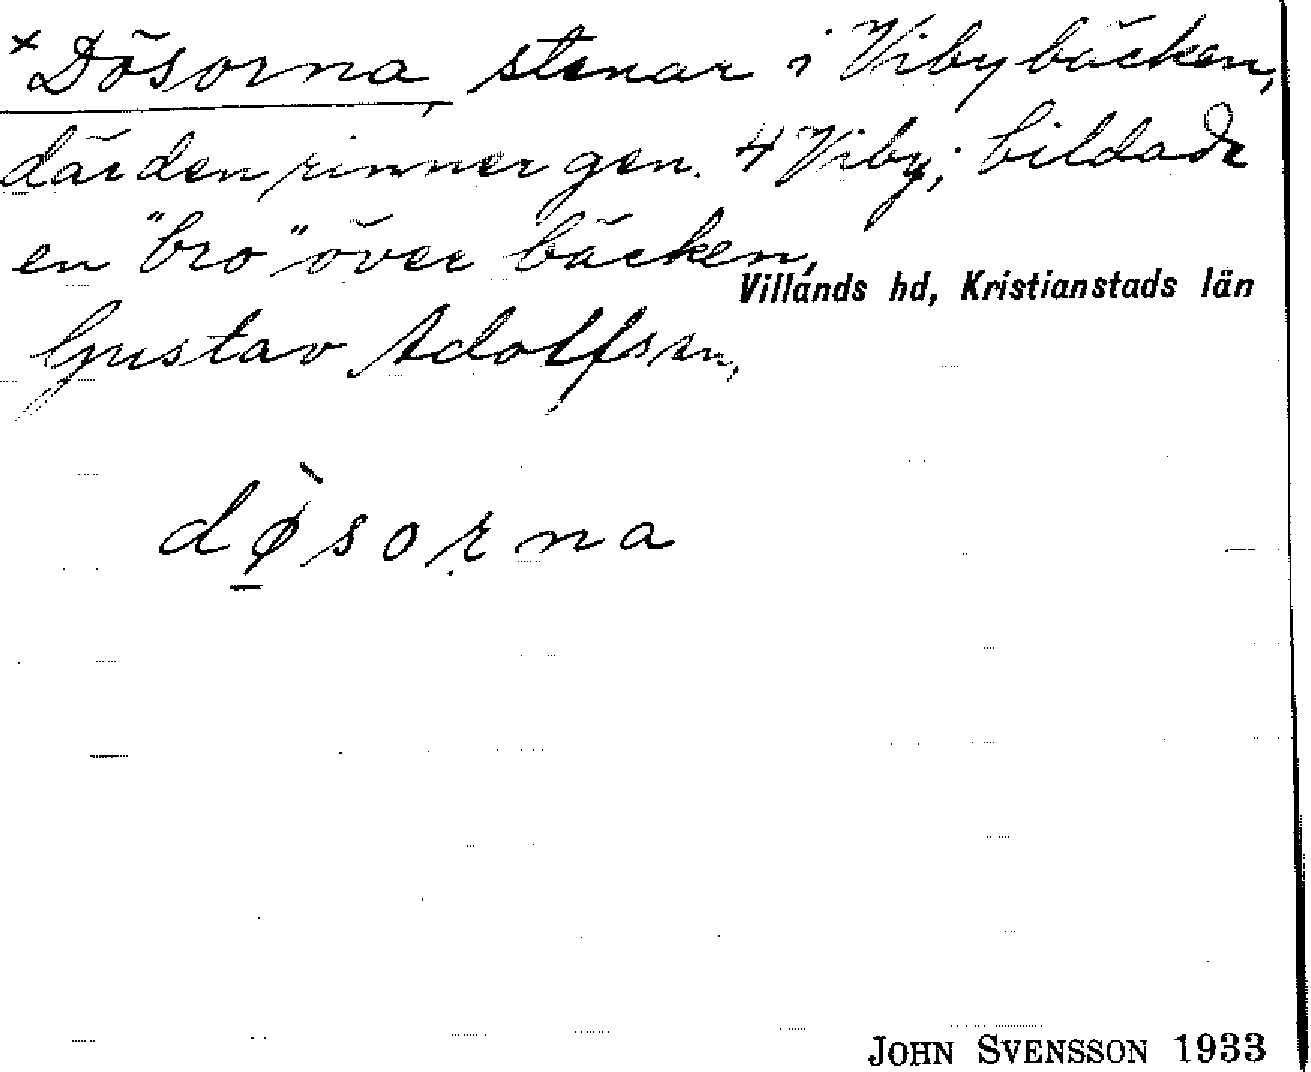 × Dösorna, stenar i Vibybäcken,
där den rinner gen. 4 Viby; bildade
en "bro" över bäcken,
Villands hd, Kristianstads län
Gustav Adolfs sn,
dø̀sorna
JOHN SVENSSON 1933